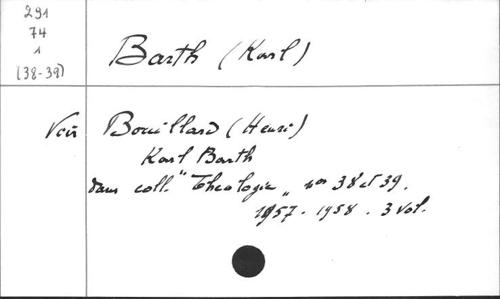 291
74
1
(38-39)
Barth (Karl)
Voir Bouillard (Henri)
Karl Barth
dans coll. "Theologie" nos 38 et 39.
1957-1958. 3 vol.